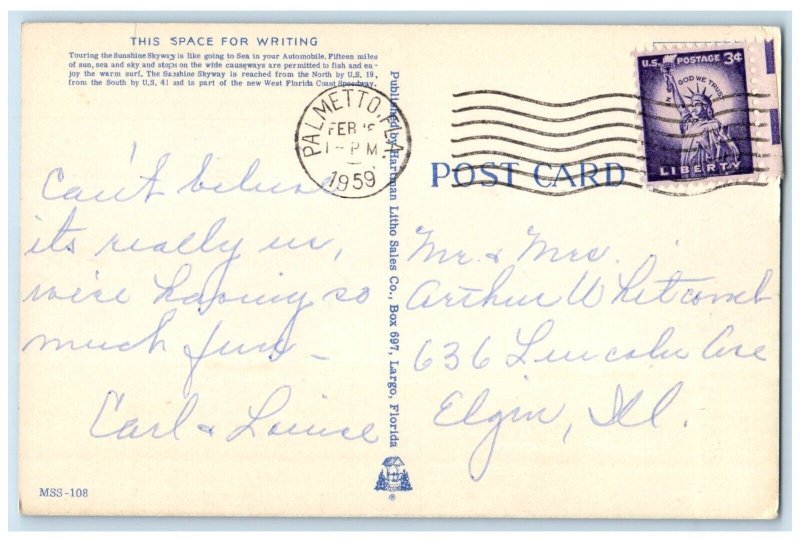 THIS SPACE FOR WRITING
Touring the Sunshine Skyway is like going to Sea in your Automobile. Fifteen miles
of sun, sea and sky and stops on the wide causeways are permitted to fish and en-
joy the warm surf. The Sunshine Skyway is reached from the North by U.S. 19,
from the South by U.S. 41 and is part of the new West Florida Coast Speedway.
can't believe
its really us,
we're having so
much fun —
Carl & Louise
MSS-108
Published by Hartman Litho Sales Co., Box 697, Largo, Florida
®
PALMETTO, FLA.
FEB
1 - PM
1959
U.S. POSTAGE 3¢
IN GOD WE TRUST
LIBERTY
POST CARD
Mr. & Mrs.
Arthur Whitcomb
636 Lincoln Ave
Elgin, Ill.